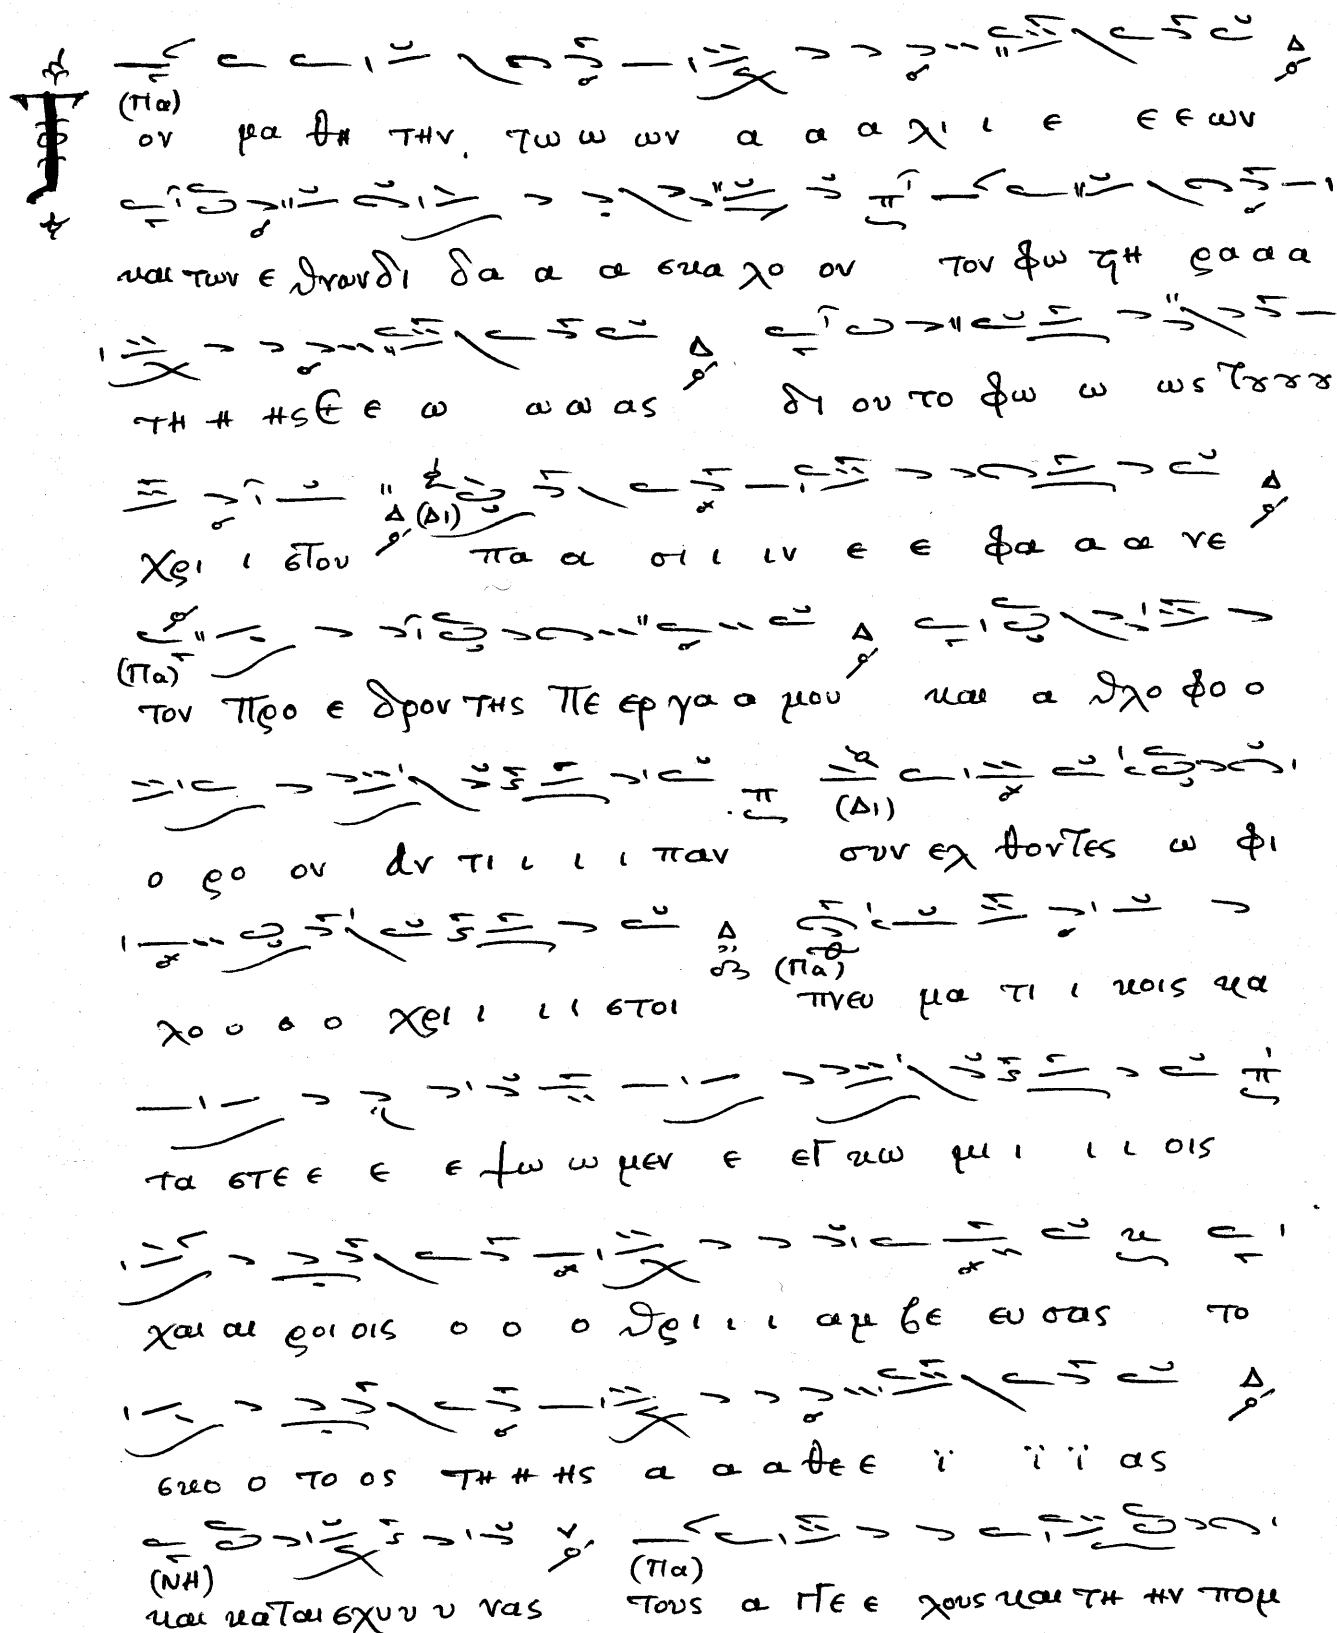 (Πα)
Τον μα θη την τω ω ων α α α λι ι ε ε ε ων
και των ε θνων δι δα α α σκα λο ον τον φω τη ρα α α
τη η ης Ε ε ω ω ω ας δι ου το φω ω ως του ου ου
(Δι)
Χρι ι στου πα α σι ι ιν ε ε φα α α νε
(Πα)
τον Προ ε δρον της Πε ερ γα α μου και α θλο φο ο
(Δι)
ο ρο ον Αν τι ι ι ι παν συν ελ θοντες ω φι
(Πα)
λο ο ο ο χρι ι ι ι στοι πνευ μα τι ι κοις κα
τα στε ε ε ε ψω ω μεν ε εγ κω μι ι ι ι οις
χαι αι ροι οις ο ο ο θρι ι ι αμ βε ευ σας το
σκο ο το ος τη η ης α α α θε ε ϊ ϊ ϊ ας
(ΝΗ) (Πα)
και καται σχυ υ υ νας τους α γγε ε λους και τη ην πομ